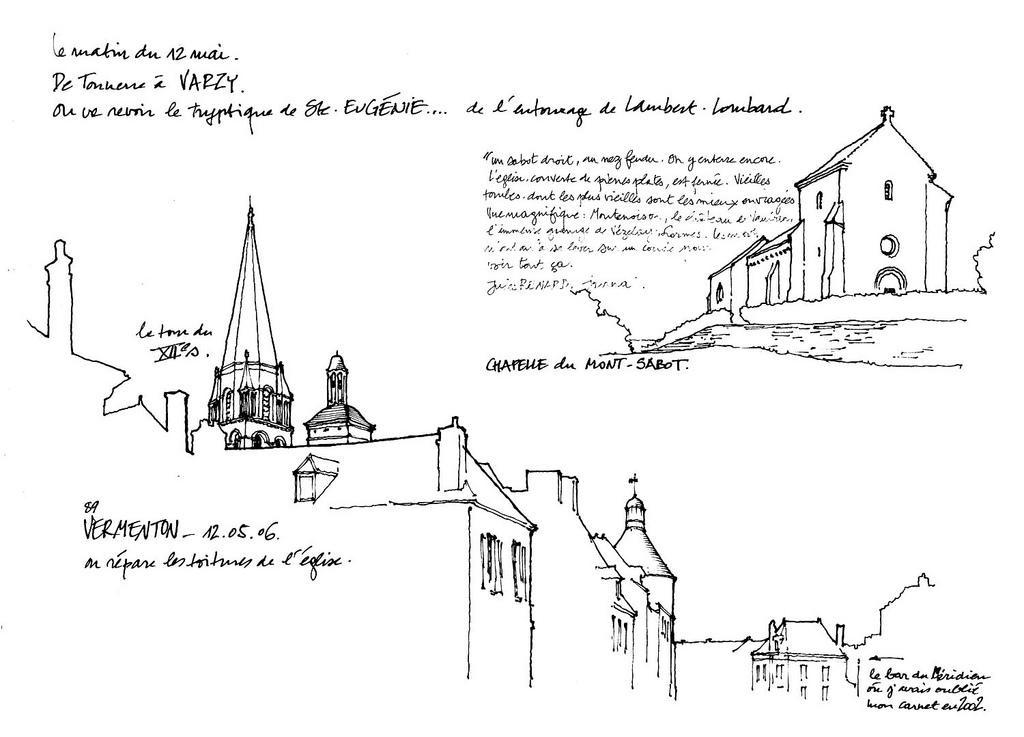 le matin du 12 mai.
De Tonnerre à VARZY.
On va revoir le tryptique de Ste. EUGÉNIE.... de l'entourage de Lambert. Lombard.
"un sabot droit, au nez fendu. On y enterre encore.
L'église, couverte de pierres plates, est fermée. Vieilles
tombes. dont les plus vieilles sont les mieux ouvragées
Vue magnifique: Montenoison, le château de Vauban,
l'immense grange de Vézelay. Lormes. Les
se lever sur un coude pour
voir tout ça.
RENARD,
la tour du
XIIe s.
CHAPELLE du MONT-SABOT.
89
VERMENTON - 12.05.06.
on répare les toitures de l'église.
le bar du Méridien
où j'avais oublié
mon carnet en 2002.